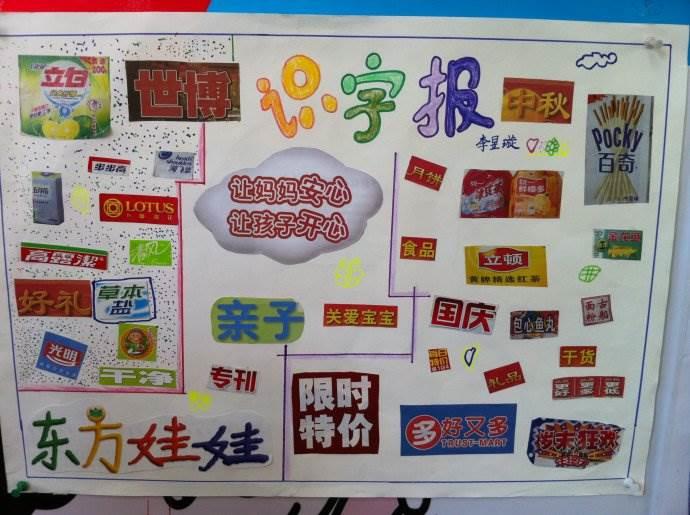 立白
世博
识字报
中秋
李星璇
Pocky
百奇
步步高
head & shoulders
海飞丝
让妈妈安心
让孩子开心
月饼
LOTUS
高露洁
食品
立顿
黄牌精选红茶
好礼
草本
盐
亲子
关爱宝宝
国庆
包心鱼丸
光明
干净
专刊
礼品
干货
更好
更多
更低
限时
特价
东方娃娃
多 好又多
TRUST-MART
周末狂欢